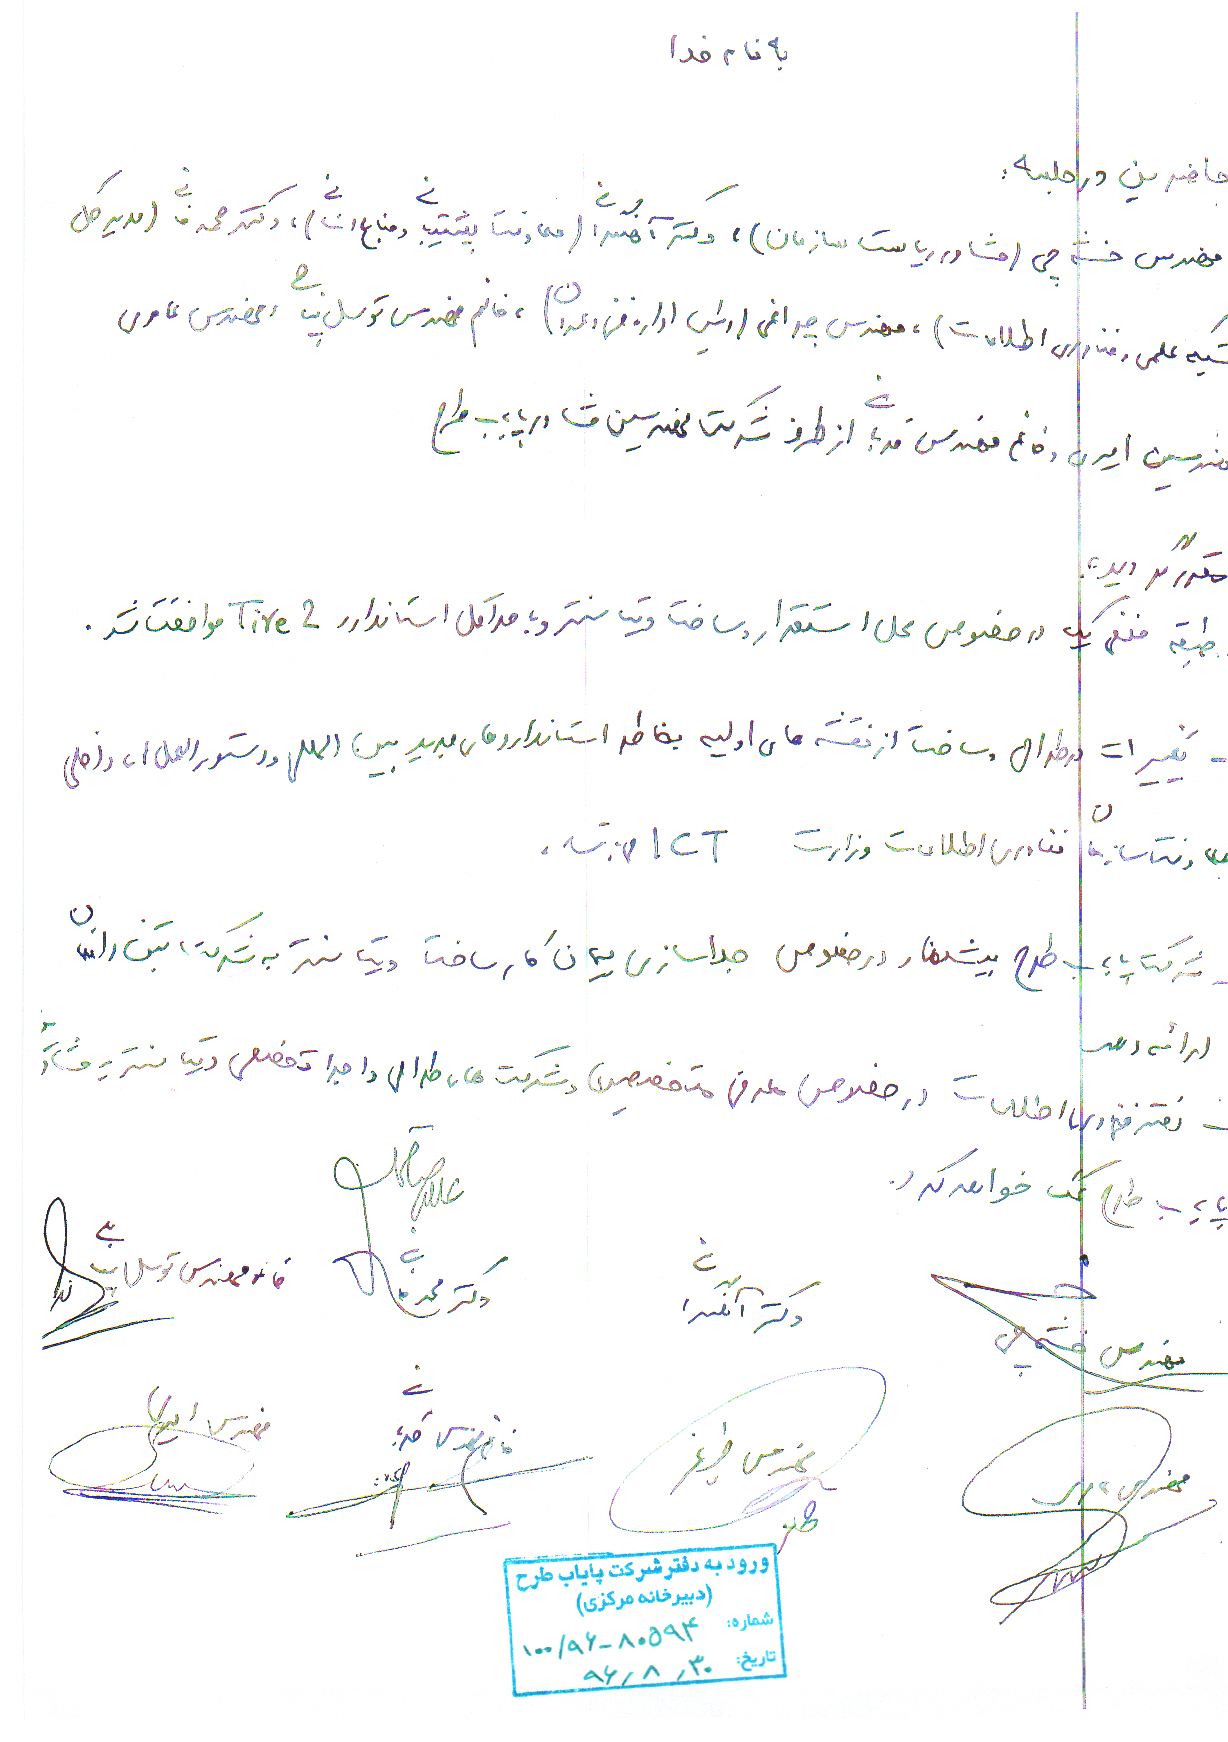 به نام خدا
حاضرین در جلسه:
مهندس خشه چی (مشاور ریاست سازمان)، دکتر آهنگرانی (معاونت پشتیبانی و منابع انسانی)، دکتر محمدخانی (مدیرکل
شبکه علمی و فناوری اطلاعات)، مهندس چراغی (رئیس اداره فنی و عمران)، خانم مهندس توسلی، مهندس عامری
مهندسین امیری و خانم مهندس از طرف شرکت مهندسین مشاور پایاب طرح
مقرر گردید:
طبقه منفی یک در خصوص محل استقرار و ساخت دیتا سنتر و با حداقل استاندارد Tire 2 موافقت شد.
- تغییرات در طراحی و ساخت از نقشه های اولیه بخاطر استانداردهای جدید بین المللی و دستورالعمل های داخلی
معاونت سازمان فناوری اطلاعات وزارت ICT
- شرکت پایاب طرح پیشنهاد در خصوص جداسازی پیمان کار ساخت دیتا سنتر به شرکت
ارائه دهد
- دفتر فناوری اطلاعات در خصوص معرفی متخصصین و شرکت های طراحی و اجرا تخصصی دیتا سنتر به مشاور
پایاب طرح کمک خواهد کرد.
خانم مهندس توسلی
دکتر محمدخانی
دکتر آهنگرانی
مهندس خشه چی
مهندس امیری
خانم مهندس
مهندس چراغی
مهندس عامری
ورود به دفتر شرکت پایاب طرح
(دبیرخانه مرکزی)
شماره: ۱۰۰/۹۶-۸۰۵۹۴
تاریخ: ۹۶/۸/۳۰